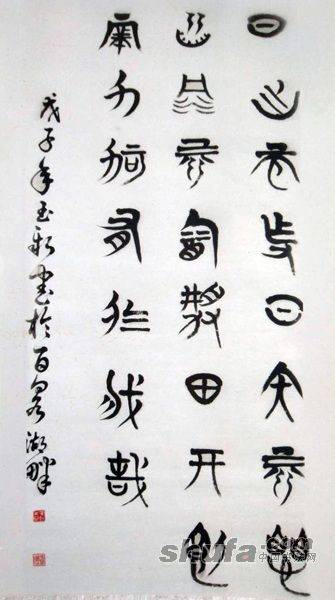 日出而作日入而息
鑿井而飲耕田而食
帝力何有於我哉
戊子年玉書於百泉湖畔
shufa